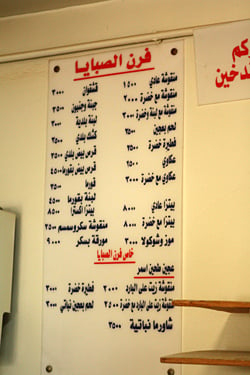 فرن الصبايا
منقوشة عادي ١٥٠٠
منقوشة مع خضرة ٢٠٠٠
منقوشة مع لبنة وخضرة
لحم بعجين ٢٥٠٠
فطيرة خضرة ٢٥٠٠
عكاوي ٢٥٠٠
عكاوي مع خضرة ٣٠٠٠
بيتزا عادي ٨٠٠٠
بيتزا مع خضرة ٨٠٠٠
موز وشوكولا ٣٠٠٠
قشقوان ٣٠٠٠
جبنة وجنبون ٣٥٠٠
لبنة بلدية ٣٠٠٠
كشك بلدي ٣٥٠٠
قرص بيض بلدي ٣٥٠٠
قرص بيض بقورما ٤٥٠٠
قورما ٣٥٠٠
لبنة بقورما ٤٥٠٠
بيتزا اكسترا ٨٥٠٠
منقوشة سكروسمسم ٢٥٠٠
مورقة بسكر ٩٠٠٠
خاص فرن الصبايا
عجين طحين اسمر
منقوشة زيت على البارد ٢٠٠٠
منقوشة زيت على البارد مع خضرة ٢٥٠٠
فطيرة خضرة ٣٠٠٠
لحم بعجين نباتي ٣٠٠٠
شاورما نباتية ٣٥٠٠